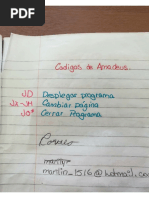 Codigos de Amadeus.
JD Desplegar programa
JU-JM Cambiar página
JO* Cerrar Programa
Correo
martin_1516@hotmail.com